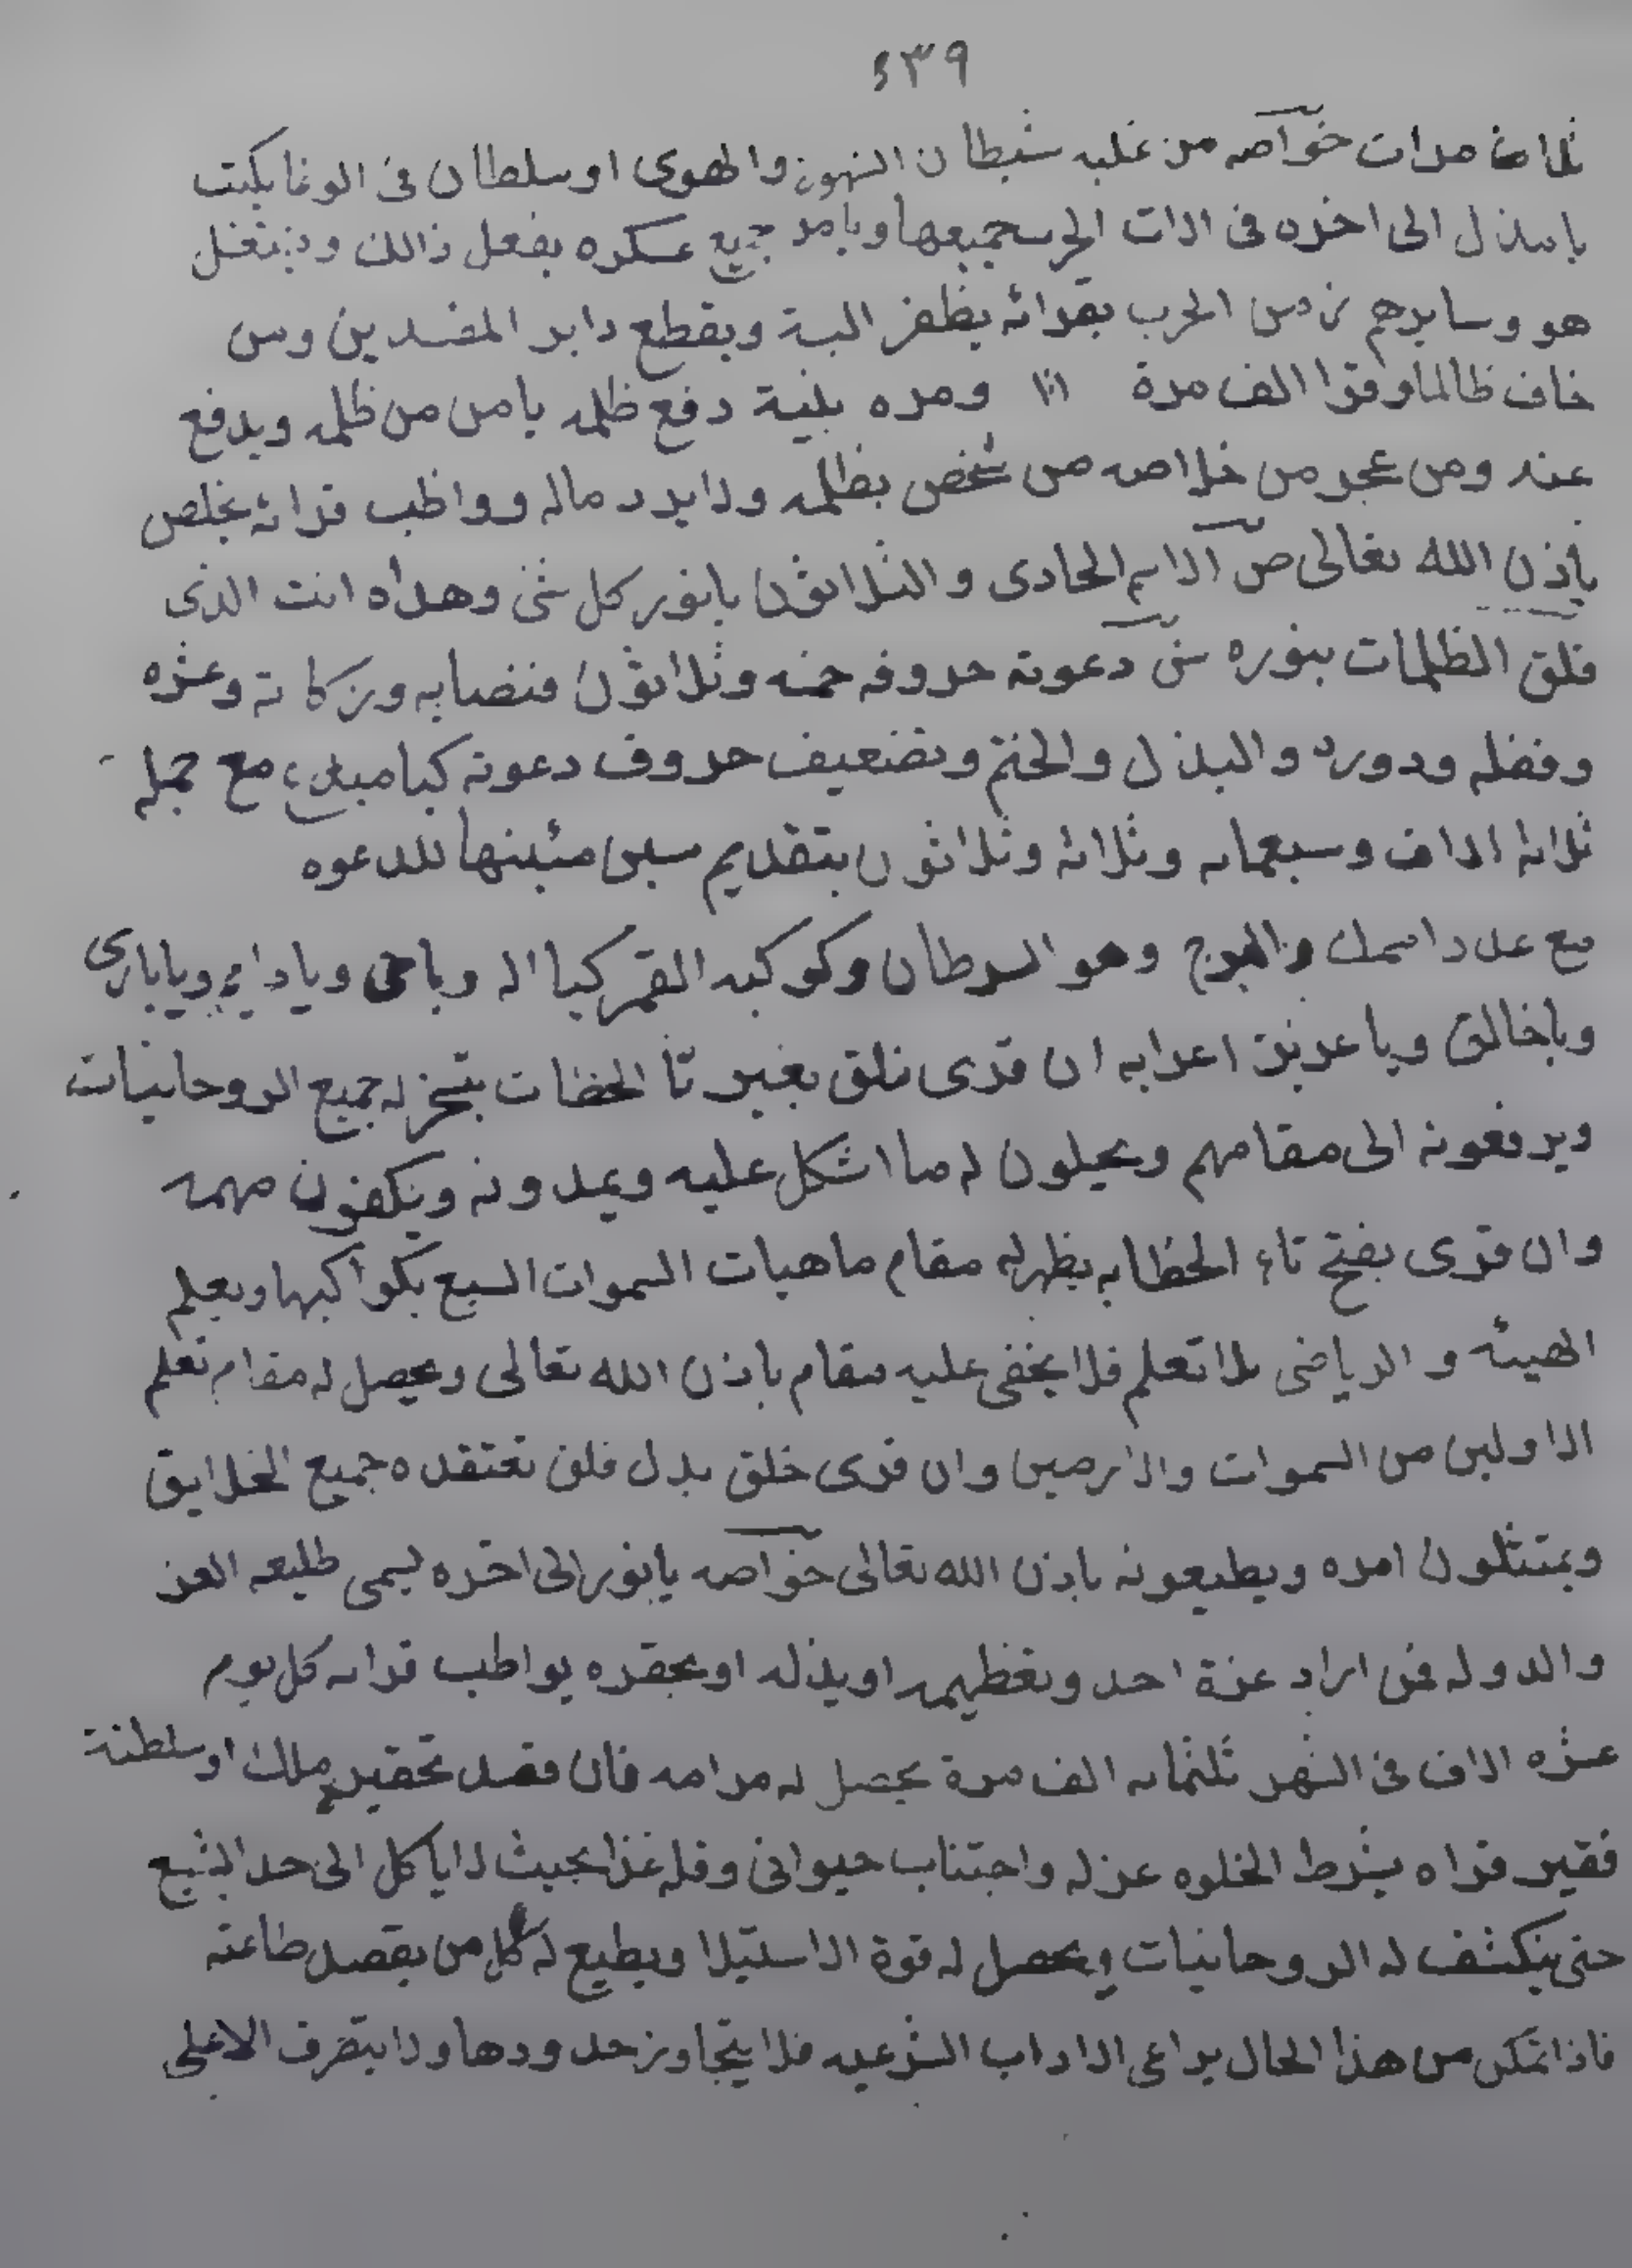 ٤٣٩
ثلاث مرات خواصه من غلبه شيطان الشهوة والهوى او سلطان فى الوغا يكتب
يا مذل الى اخره فى الات الحرب جميعها ويامر جميع عسكره بفعل ذالك ويشتغل
هو وسايرهم زمن الحرب بقرائه يظفر البتة ويقطع دابر المفسدين ومن
خاف ظالما وقرا الف مرة ومره بنية دفع ظلمه يامن من ظلمه ويدفع
عنه ومن عجز من خلاصه من شخص يظلمه ولا يرد ماله وواظب قرائه يخلص
باذن الله تعالى ص الاسم الحادى والثلاثون يا نور كل شئ وهداه انت الذى
فلق الظلمات بنوره ش دعوته حروفه خمسه وثلاثون فنصابه وزكاته وعشره
وقفله ودوره والبذل والختم وتضعيف حروف دعوته كبامبدئ مع جمله
ثلاثه الاف وسبعمائه وثلاثه وثلاثون بتقديم سين مئينها للدعوه
مع عدد اسمك والبرج وهو السرطان وكوكبه القمر كيا اله وياحى ويادائم وياباري
وياخالق وياعزيز اعرابه ان قرى فلق بغير تا الخطاب يتسخر له جميع الروحانيات
ويرفعونه الى مقامهم ويحلون له ما اشكل عليه ويمدونه ويكفون مهمه
وان قرى بفتح تاء الخطابه يظهر له مقام ماهيات السموات السبع بكواكبها ويعلم
الهيئه والرياضى بلا تعلم فلا يخفى عليه مقام باذن الله تعالى ويحصل له مقام تعلم
الاولين من السموات والارضين وان قرى خلق بدل فلق تعتقده جميع الخلايق
ويمتثلون امره ويطيعونه باذن الله تعالى خواصه يا نور الى اخره ليسمى طليعه العز
والدوله فمن اراد عزة احد وتعظيمه او يذله او يحقره يواظب قرائه كل يوم
عشره الاف فى الشهر ثلثمائه الف مرة يحصل له مرامه فان قصد تحقير ملك او سلطنة
فقير قراه بشرط الخلوه عزله واجتناب حيوانى وقله غذا بحيث لا ياكل الى حد الشبع
حتى ينكشف له الروحانيات ويحصل له قوة الاستيلا ويطيع له كل من يقصد طاعته
فاذا تمكن من هذا الحال يراعى الاداب الشرعيه فلا يتجاوز حدودها ولا يتصرف الاعلى